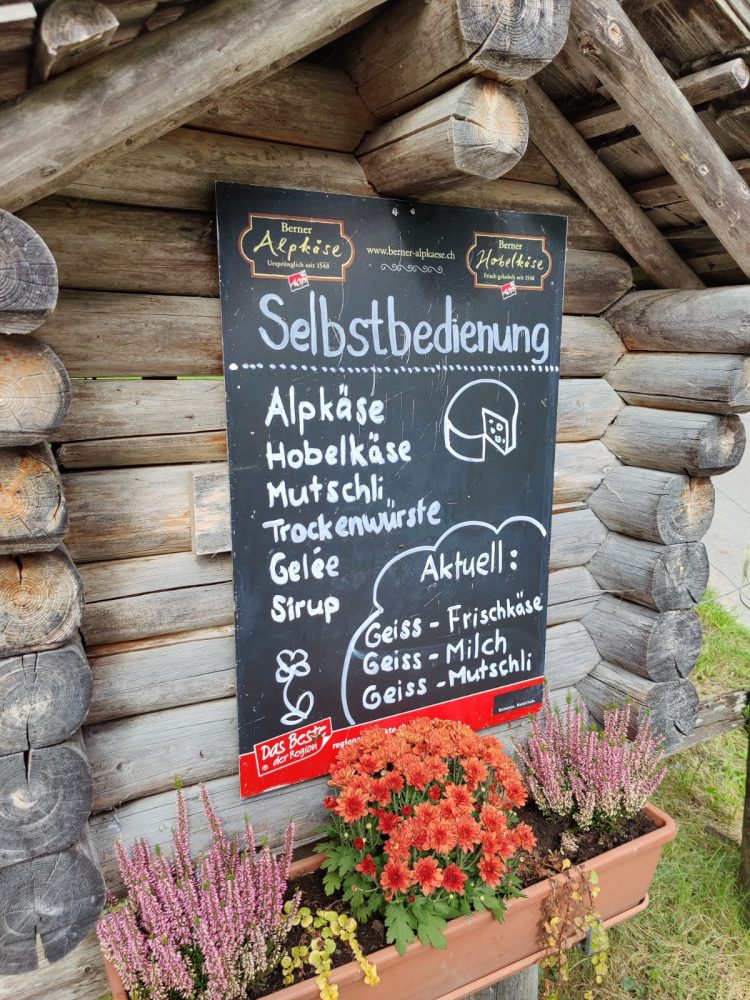 Berner
Alpkäse
Ursprünglich seit 1548
www.berner-alpkaese.ch
Berner
Hobelkäse
Frisch gehobelt seit 1548
Selbstbedienung
Alpkäse
Hobelkäse
Mutschli
Trockenwürste
Gelée
Sirup
Aktuell:
Geiss - Frischkäse
Geiss - Milch
Geiss - Mutschli
Das Beste
der Region
Schweiz. Natürlich.